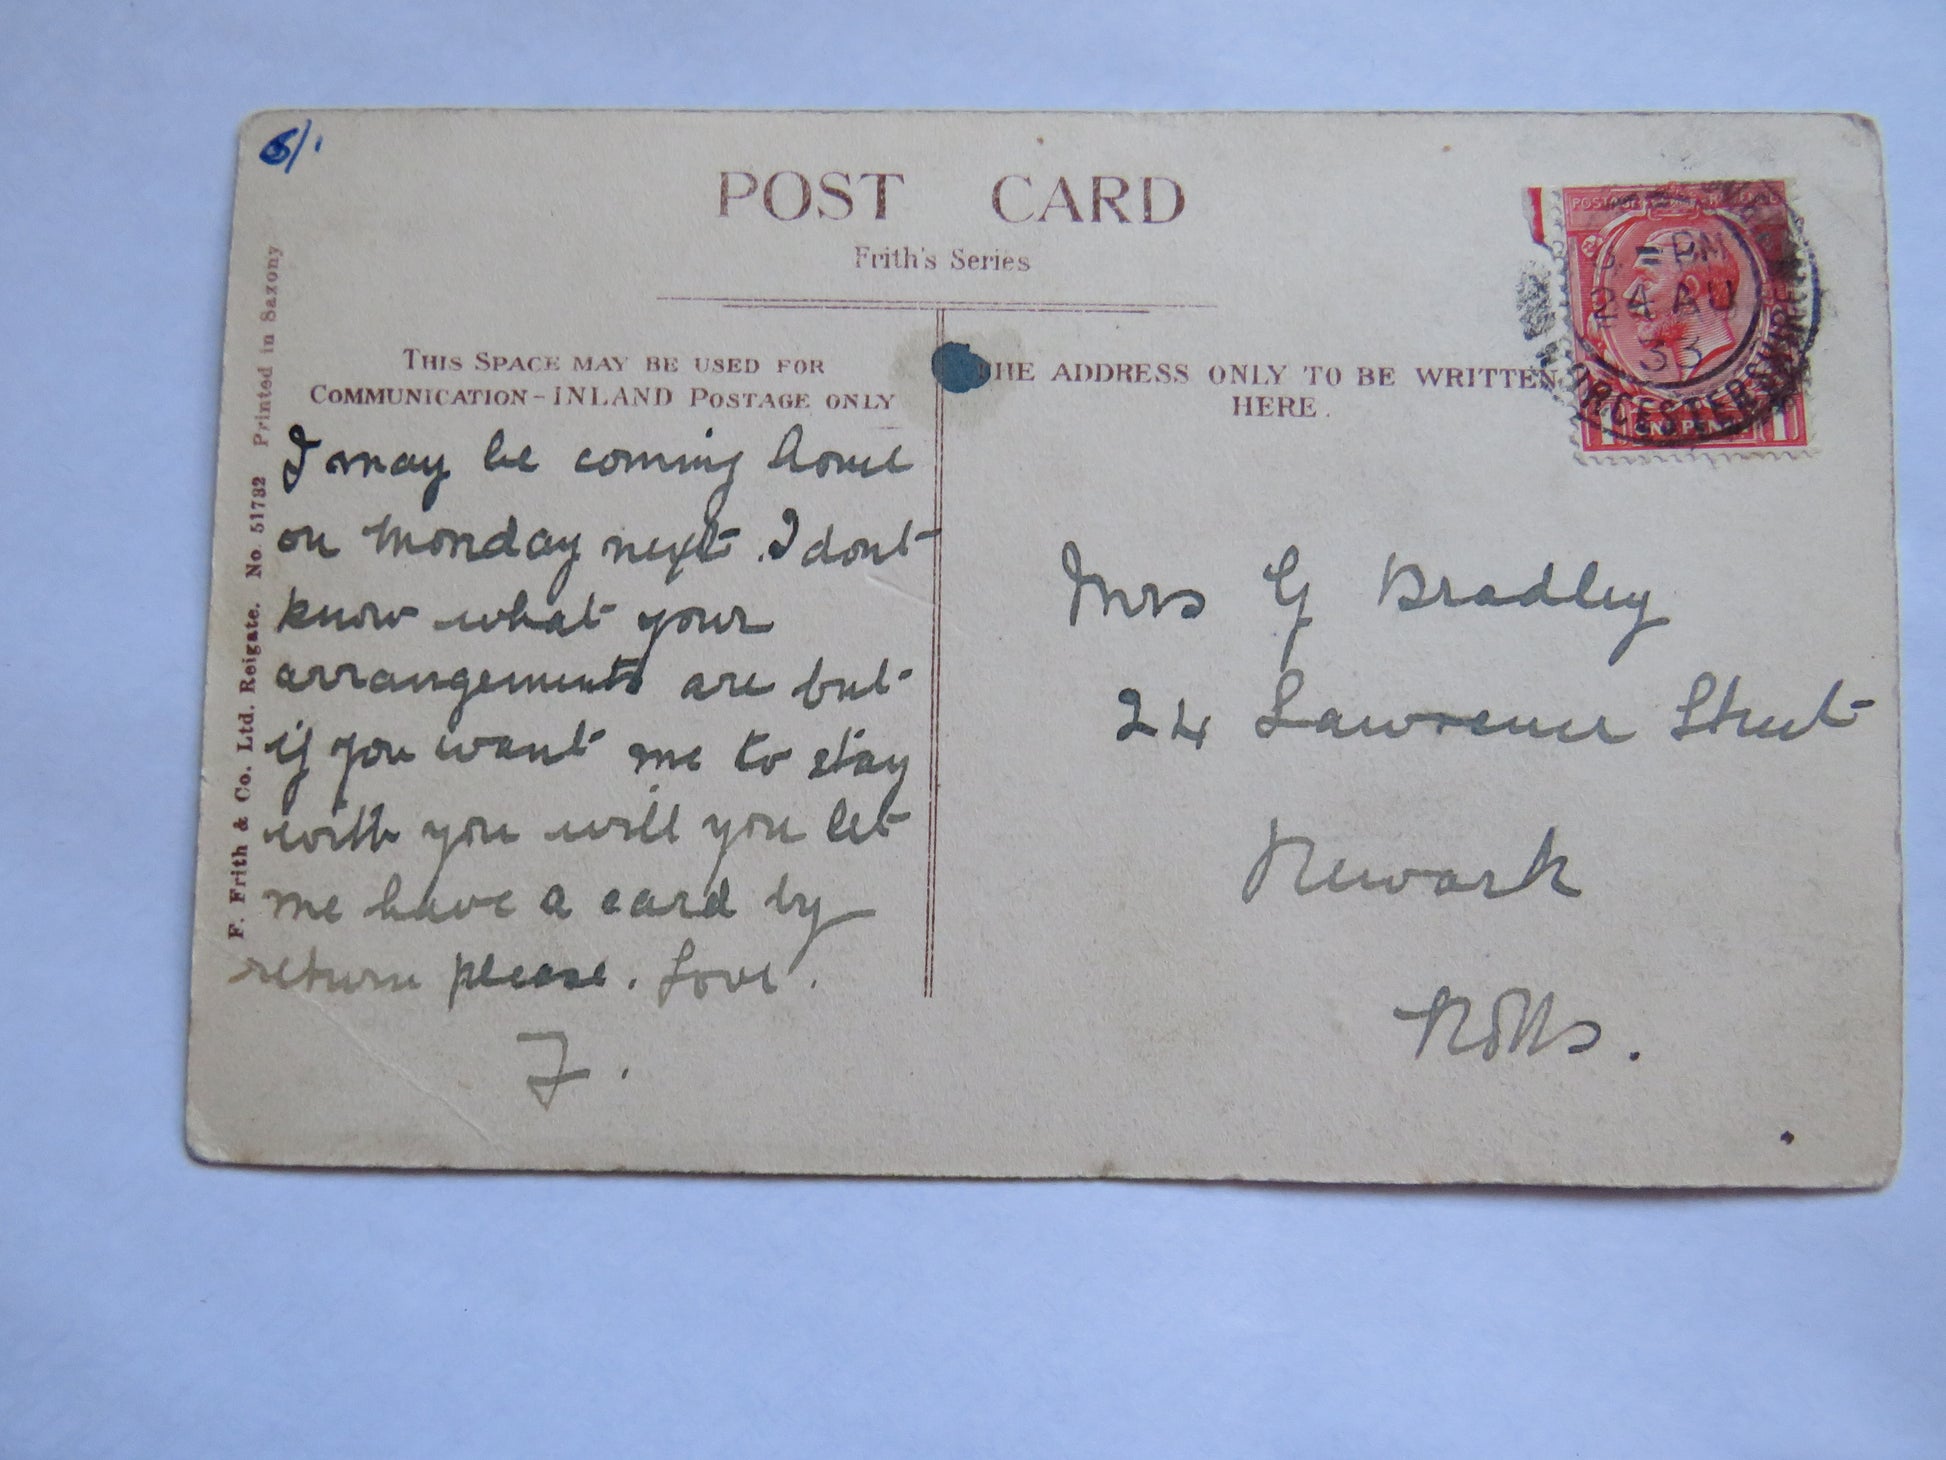 6/.
POST CARD
Frith's Series
THIS SPACE MAY BE USED FOR
COMMUNICATION - INLAND POSTAGE ONLY
THE ADDRESS ONLY TO BE WRITTEN
HERE.
F. Frith & Co. Ltd. Reigate. No. 51782 Printed in Saxony
I may be coming home
on Monday next. I dont
know what your
arrangements are but
if you want me to stay
with you will you let
me have a card by
return please. Love.
F.
Mrs G Bradley
24 Lawrence Street
Newark
Notts.
PM
24 AU
33
WORCESTERSHIRE
1 ONE PENNY 1